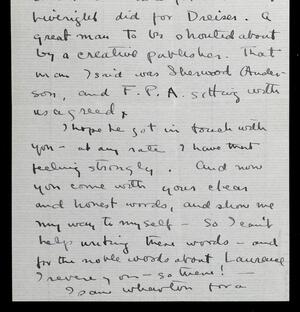 Liveright did for Dreiser. A
great man to be shouted about
by a creative publisher. That
man I said was Sherwood Ander-
son, and F.P.A. sitting with
us agreed.
I hope he got in touch with
you - at any rate I have that
feeling strongly. And now
you come with your clear
and honest words, and show me
my way to myself - So I can't
help writing these words - and
for the noble words about Laurence
I revere you - so there! -
I saw Wharton for a